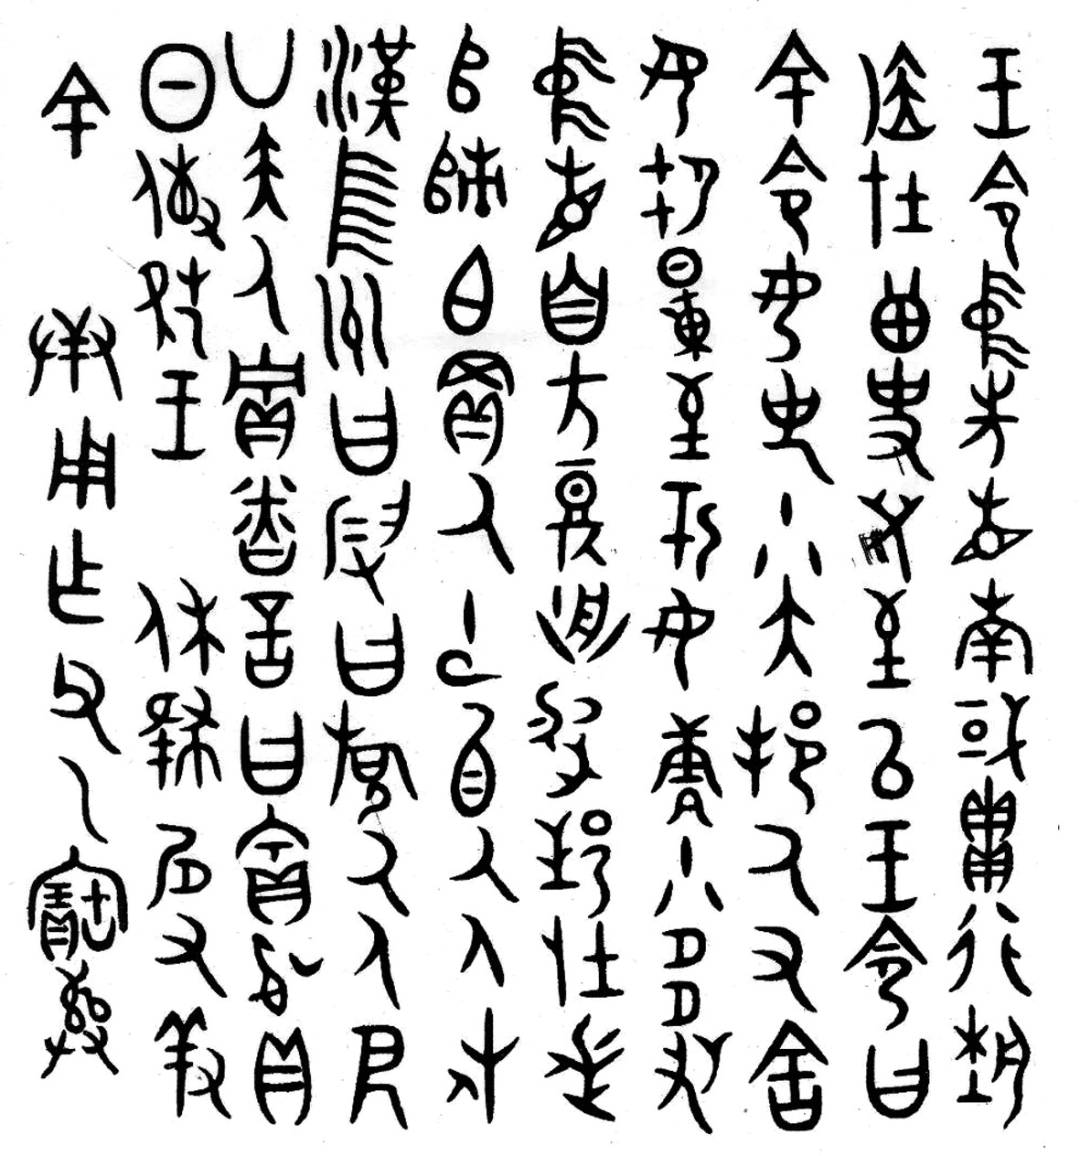 王令中先省南或貫行埶
应在曾史兒至以王令曰
余令女史小大邦氒又舍
女芻量至于女小多
中省自方邦在
𠂤次白買父以氒人戍
漢中州曰叚曰氒人
廿夫人言曰賓貝
日傳王休又羞
余用乍父乙寶彝